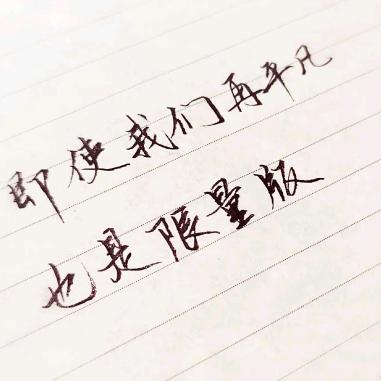 即使我们再平凡
也是限量版